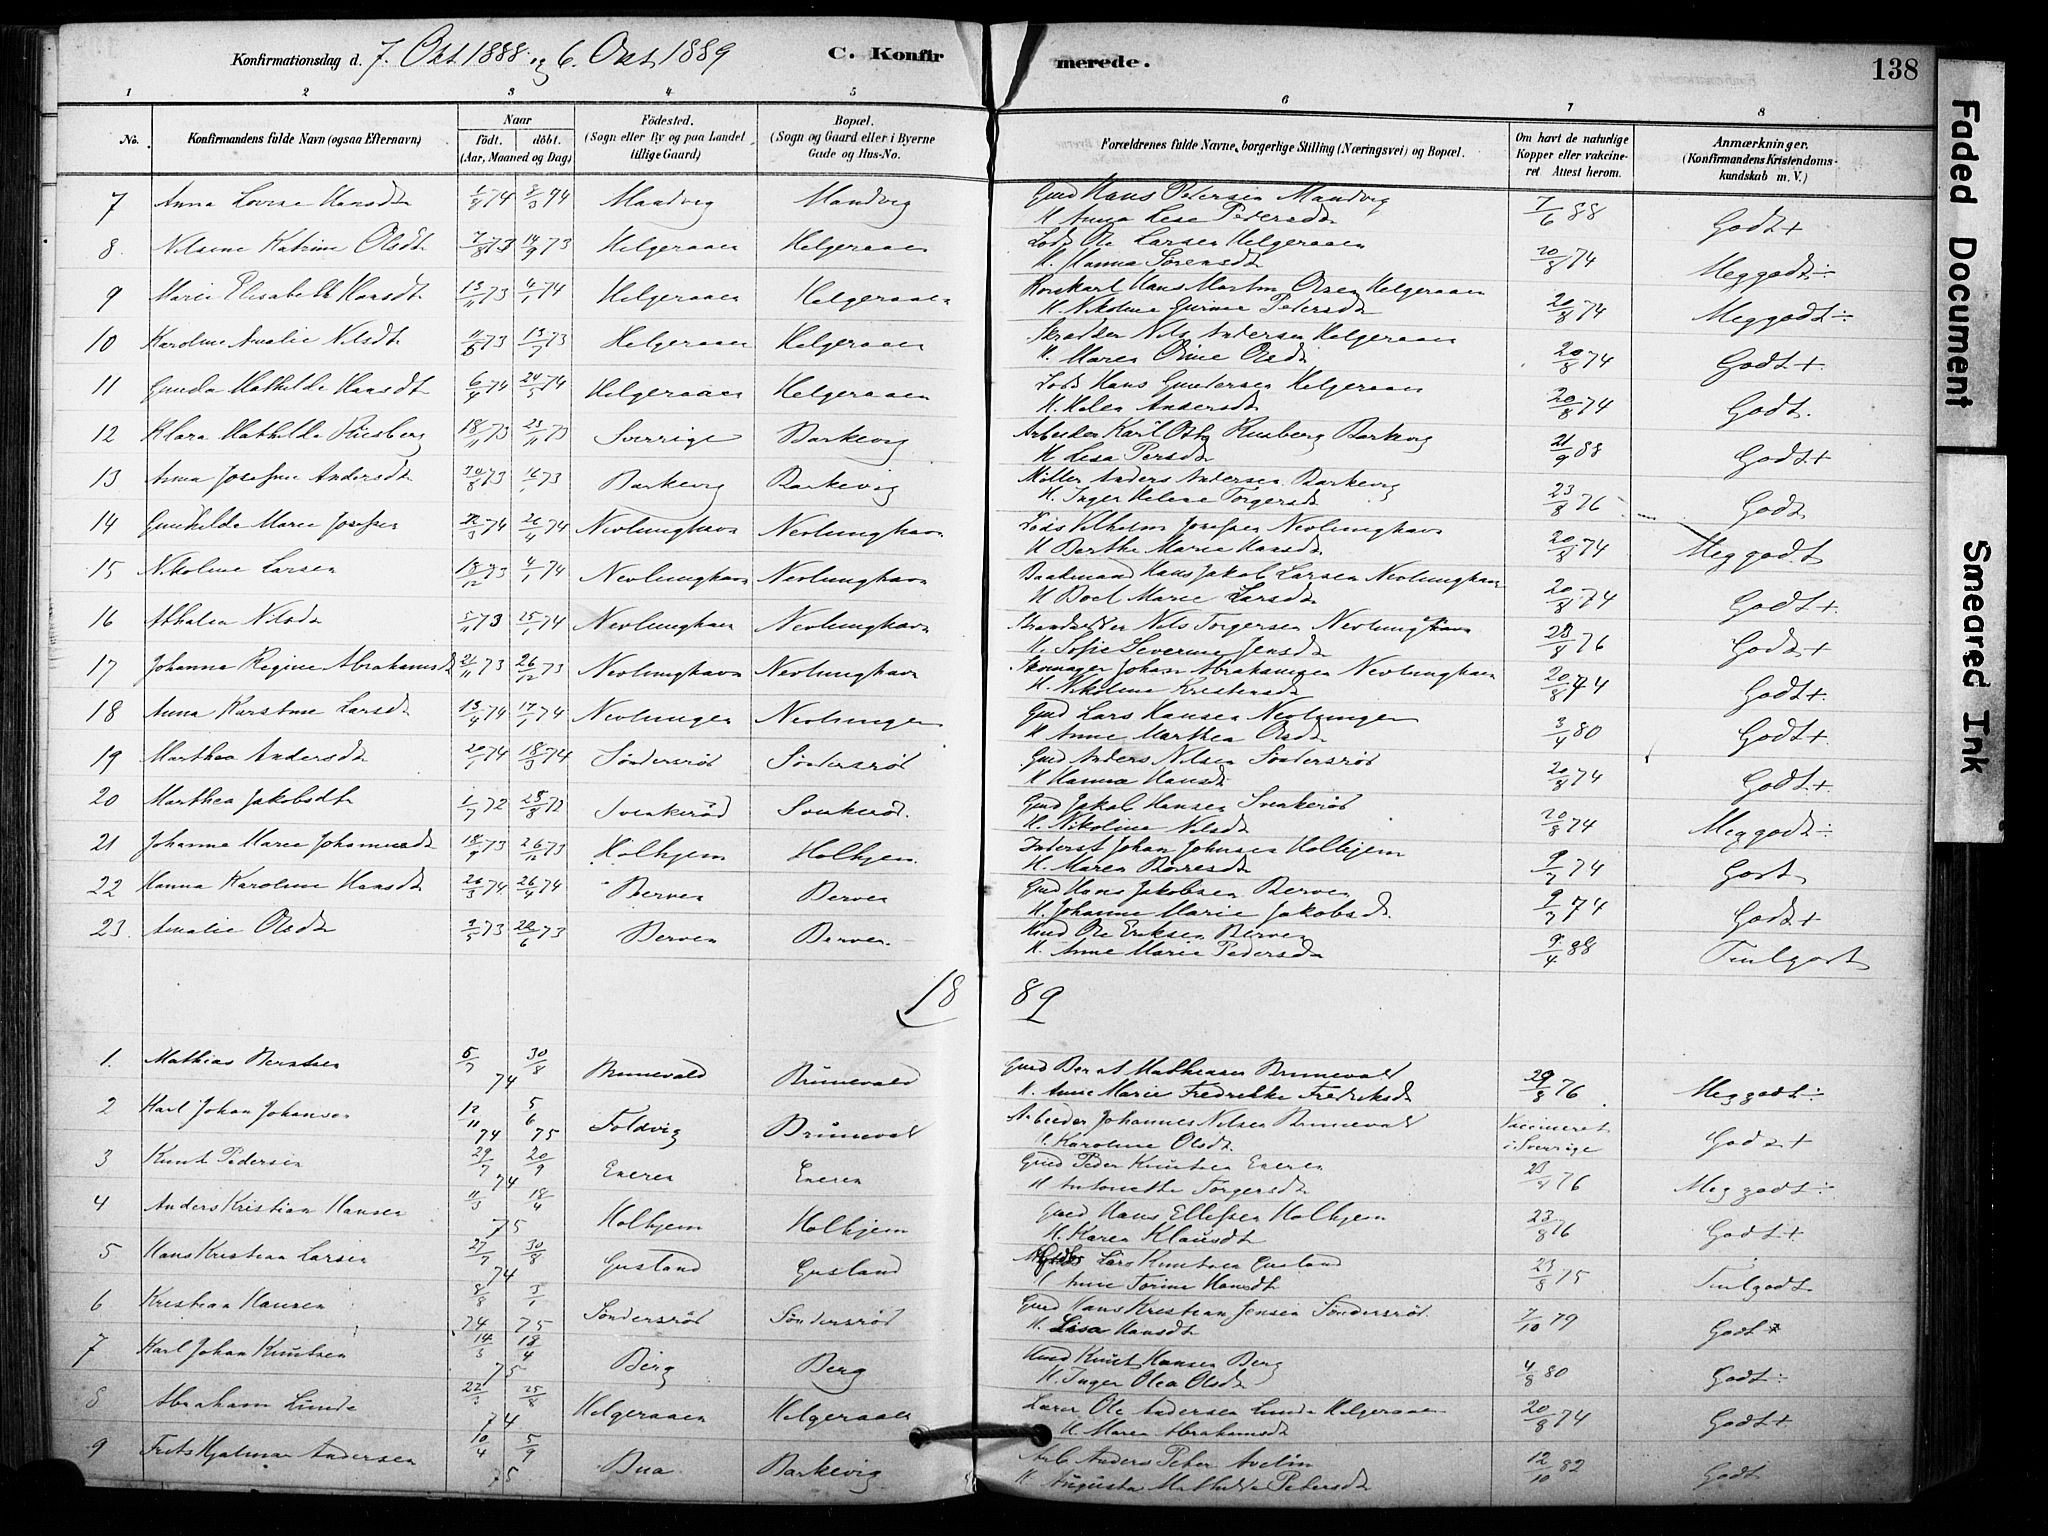 Konfirmationsdag d. 7. Okt 1888 og 6. Okt 1889 C. Konfirmerede. 138
1 2 3 4 5 6 7 8
No. Konfirmandens fulde Navn (ogsaa Efternavn) Naar Født. døbt. (Aar, Maaned og Dag) Fødested. (Sogn eller By og paa Landet tillige Gaard) Bopæl. (Sogn og Gaard eller i Byerne Gade og Hus-No. Forældrenes fulde Navne, borgerlige Stilling (Næringsvei) og Bopæl. Om havt de naturlige Kopper eller vakcineret Attest herom. Anmærkninger. (Konfirmandens Kristendomskundskab m. V.)
7 Anna Lovise Hansdt 74 74 Mandvig Mandvig Gmd Hans Petersen Mandvig 7/6 88 Godt +
H. Anna Lese Pedersdt
8 Nilsine Katrine Olsdt 73 14/9 73 Helgeraaen Helgeraaen Lods Ole Larsen Helgeraaen 20/8 74 Meggodt ÷
H. Hanna Sørensdt
9 Marie Elisabeth Hansdt 13/11 73 4/1 74 Helgeraaen Helgeraaen Hans Martin Olsen Helgeraaen 20/8 74 Meggodt ÷
H. Nikoline Gurine Petersdt
10 Karoline Amalie Nilsdt 73 13/7 73 Helgeraaen Helgeraaen Skrædder Nils Andersen Helgeraaen 20/8 74 Godt +
H. Maren Oline Olsdt
11 Gunda Mathilde Hansdt 6/4 74 24/5 74 Helgeraaen Helgeraaen Lods Hans Gundersen Helgeraaen 20/8 74 Godt.
H. Helen Andersdt
12 Klara Mathilde Rusberg 18/11 73 23/11 73 Sverrige Barkevig Arbeider Karl Rusberg Barkevig 21/9 88 Godt +
H. Lesa Persdt
13 Anna Josefine Andersdt 73 73 Barkevig Barkevig Møller Anders Andersen Barkevig 23/8 76 Godt
H. Inger Helene Torgersdt
14 Gunhilde Marie Josefsen 74 26/4 74 Nevlunghavn Nevlunghavn Lods Vilhelm Josefsen Nevlunghavn 20/8 74 Meggodt
H Berthe Marie Hansdt
15 Nikoline Larsen 73 4/1 74 Nevlunghavn Nevlunghavn Baadmand Hans Jakob Larsen Nevlunghavn 20/8 74 Godt +
H Boel Marie Larsdt
16 Athalia Nilsdt 5/11 73 25/1 74 Nevlunghavn Nevlunghavn Nils Torgersen Nevlunghavn 76 Godt +
H. Sofie Severine Jensdt
17 Johanna Regine Abrahamsdt 2/11 73 26/12 73 Nevlunghavn Nevlunghavn Skomager Johan Abrahamsen Nevlunghavn 20/8 74 Godt +.
H. Nikoline Kristensdt
18 Anna Karstine Larsdt 74 74 Nevlungen Nevlungen Gmd Lars Hansen Nevlungen 3/4 80 Godt +.
H Anne Marthea Olsdt
19 Marthea Andersdt 74 18/3 74 Søndersrød Søndersrød Gmd Anders Nilsen Søndersrød 20/8 74 Godt +.
H Hanna Hansdt
20 Marthea Jakobsdt 1/7 72 72 Svenkerød Svenkerød. Gmd Jakob Hansen Svenkerød 20/8 74 Meggodt ÷
H. Nikoline Nilsdt
21 Johanna Marie Johannesdt 18/9 73 26/12 73 Holhjem Holhjem Inderst Johan Johnsen Holhjem 9/7 74 Godt
H. Maren Børresdt
22 Hanna Karoline Hansdt 26/3 74 26/4 74 Berven Berven Gmd Hans Jakobsen Berven 9/7 74 Godt +
H. Johanne Marie Jakobsdt.
23. Amalie Olsdt 9/5 73 22/6 73 Berven Berven Hmd Ole Eriksen Berven 9/4 88 Temlgodt
H. Anne Marie Pedersdt
1889
1. Mathias Berntsen 5/7 30/8 74 Brunevald Brunevald Gmd Bernt Mathiasen Brunevald 29/8 76 Meggodt ÷
H. Anne Marie Fredrikke Fredriksdt
2 Karl Johan Johansen 12/11 74 5/6 75 Foldvig Brunevald Arbeider Johannes Nilsen Brunevald Vaccineret i Sverige Godt +
H. Karoline Olsdt
3 Knut Pedersen 29/7 20/9 74 Eneren Eneren Gmd Peder Knutsen Eneren 76 Meggodt ÷
H Antonette Torgersdt
4 Anders Kristian Hansen 11/3 18/4 75 Holhjem Holhjem Gmd Hans Ellefsen Holhjem 23/8 76 Godt +
H. Karen Klausdt
5 Hans Kristian Larsen 27/7 30/8 74 Gusland Gusland Lars Knutsen Gusland 23/8 75 Temlgodt
H Anne Torine Hansdt
6 Kristian Hansen 8/8 74 3/1 75 Søndersrød Søndersrød Gmd Hans Kristian Jensen Søndersrød. 7/10 79 Godt +
H. Lisa Hansdt
7 Karl Johan Knutsen 14/3 18/4 75 Berg Berg Hmd Knut Hansen Berg 4/8 80 Godt ÷
H. Inger Olea Olsdt
8 Abraham Lunde 22/3 25/8 74 Helgeraaen Helgeraaen Lærer Ole Andersen Lunde Helgeraaen 20/8 74 Godt +
H Maren Abrahamsdt
9 Frits Hjalmar Andersen 10/4 5/9 75 Bua. Barkevig Arb Anders Peter Avelin 12/10 82 Godt
H. Augusta Mathilde Petersdt
Faded Document
Smeared Ink